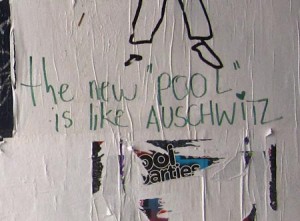 the new "POOL"
is like AUSCHWITZ
ool
parties